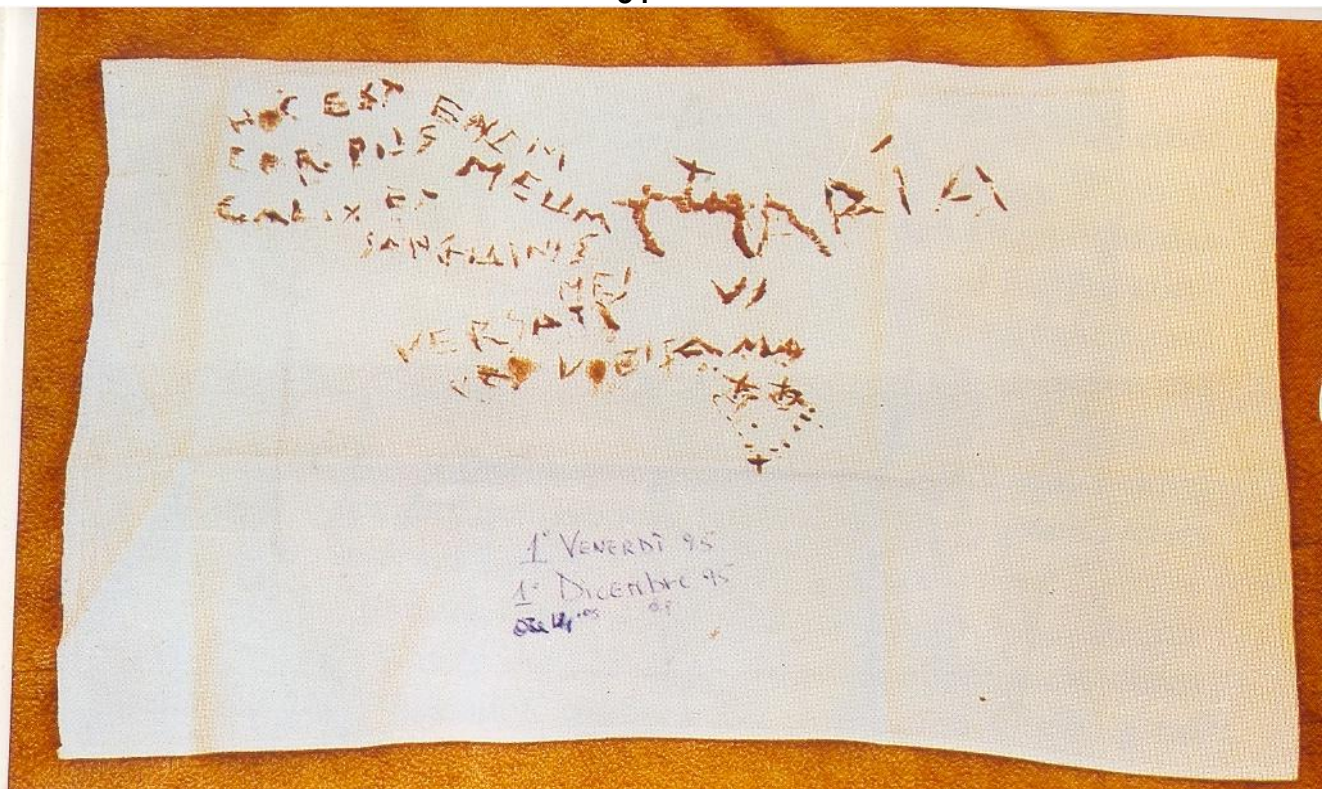 HOC EST ENIM
CORPUS MEUM
CALIX ET
SANGUINIS
MEI
VERSATE
VOBIS
MARÍA
VI
AMA
1° VENERDÌ 95
1° Dicembre 95